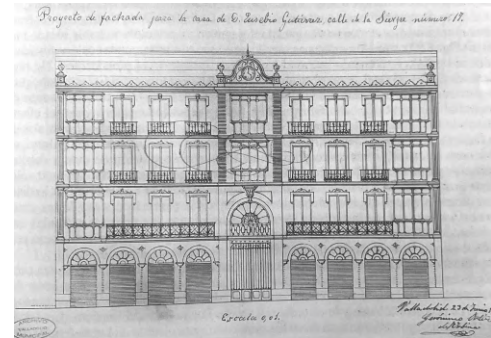 Proyecto de fachada para la casa de D. Eusebio Gutiérrez calle de la Sierpe número 17.
Escala 0,01.
Valladolid 23 de Junio
Gerónimo Ortiz
de Urbina